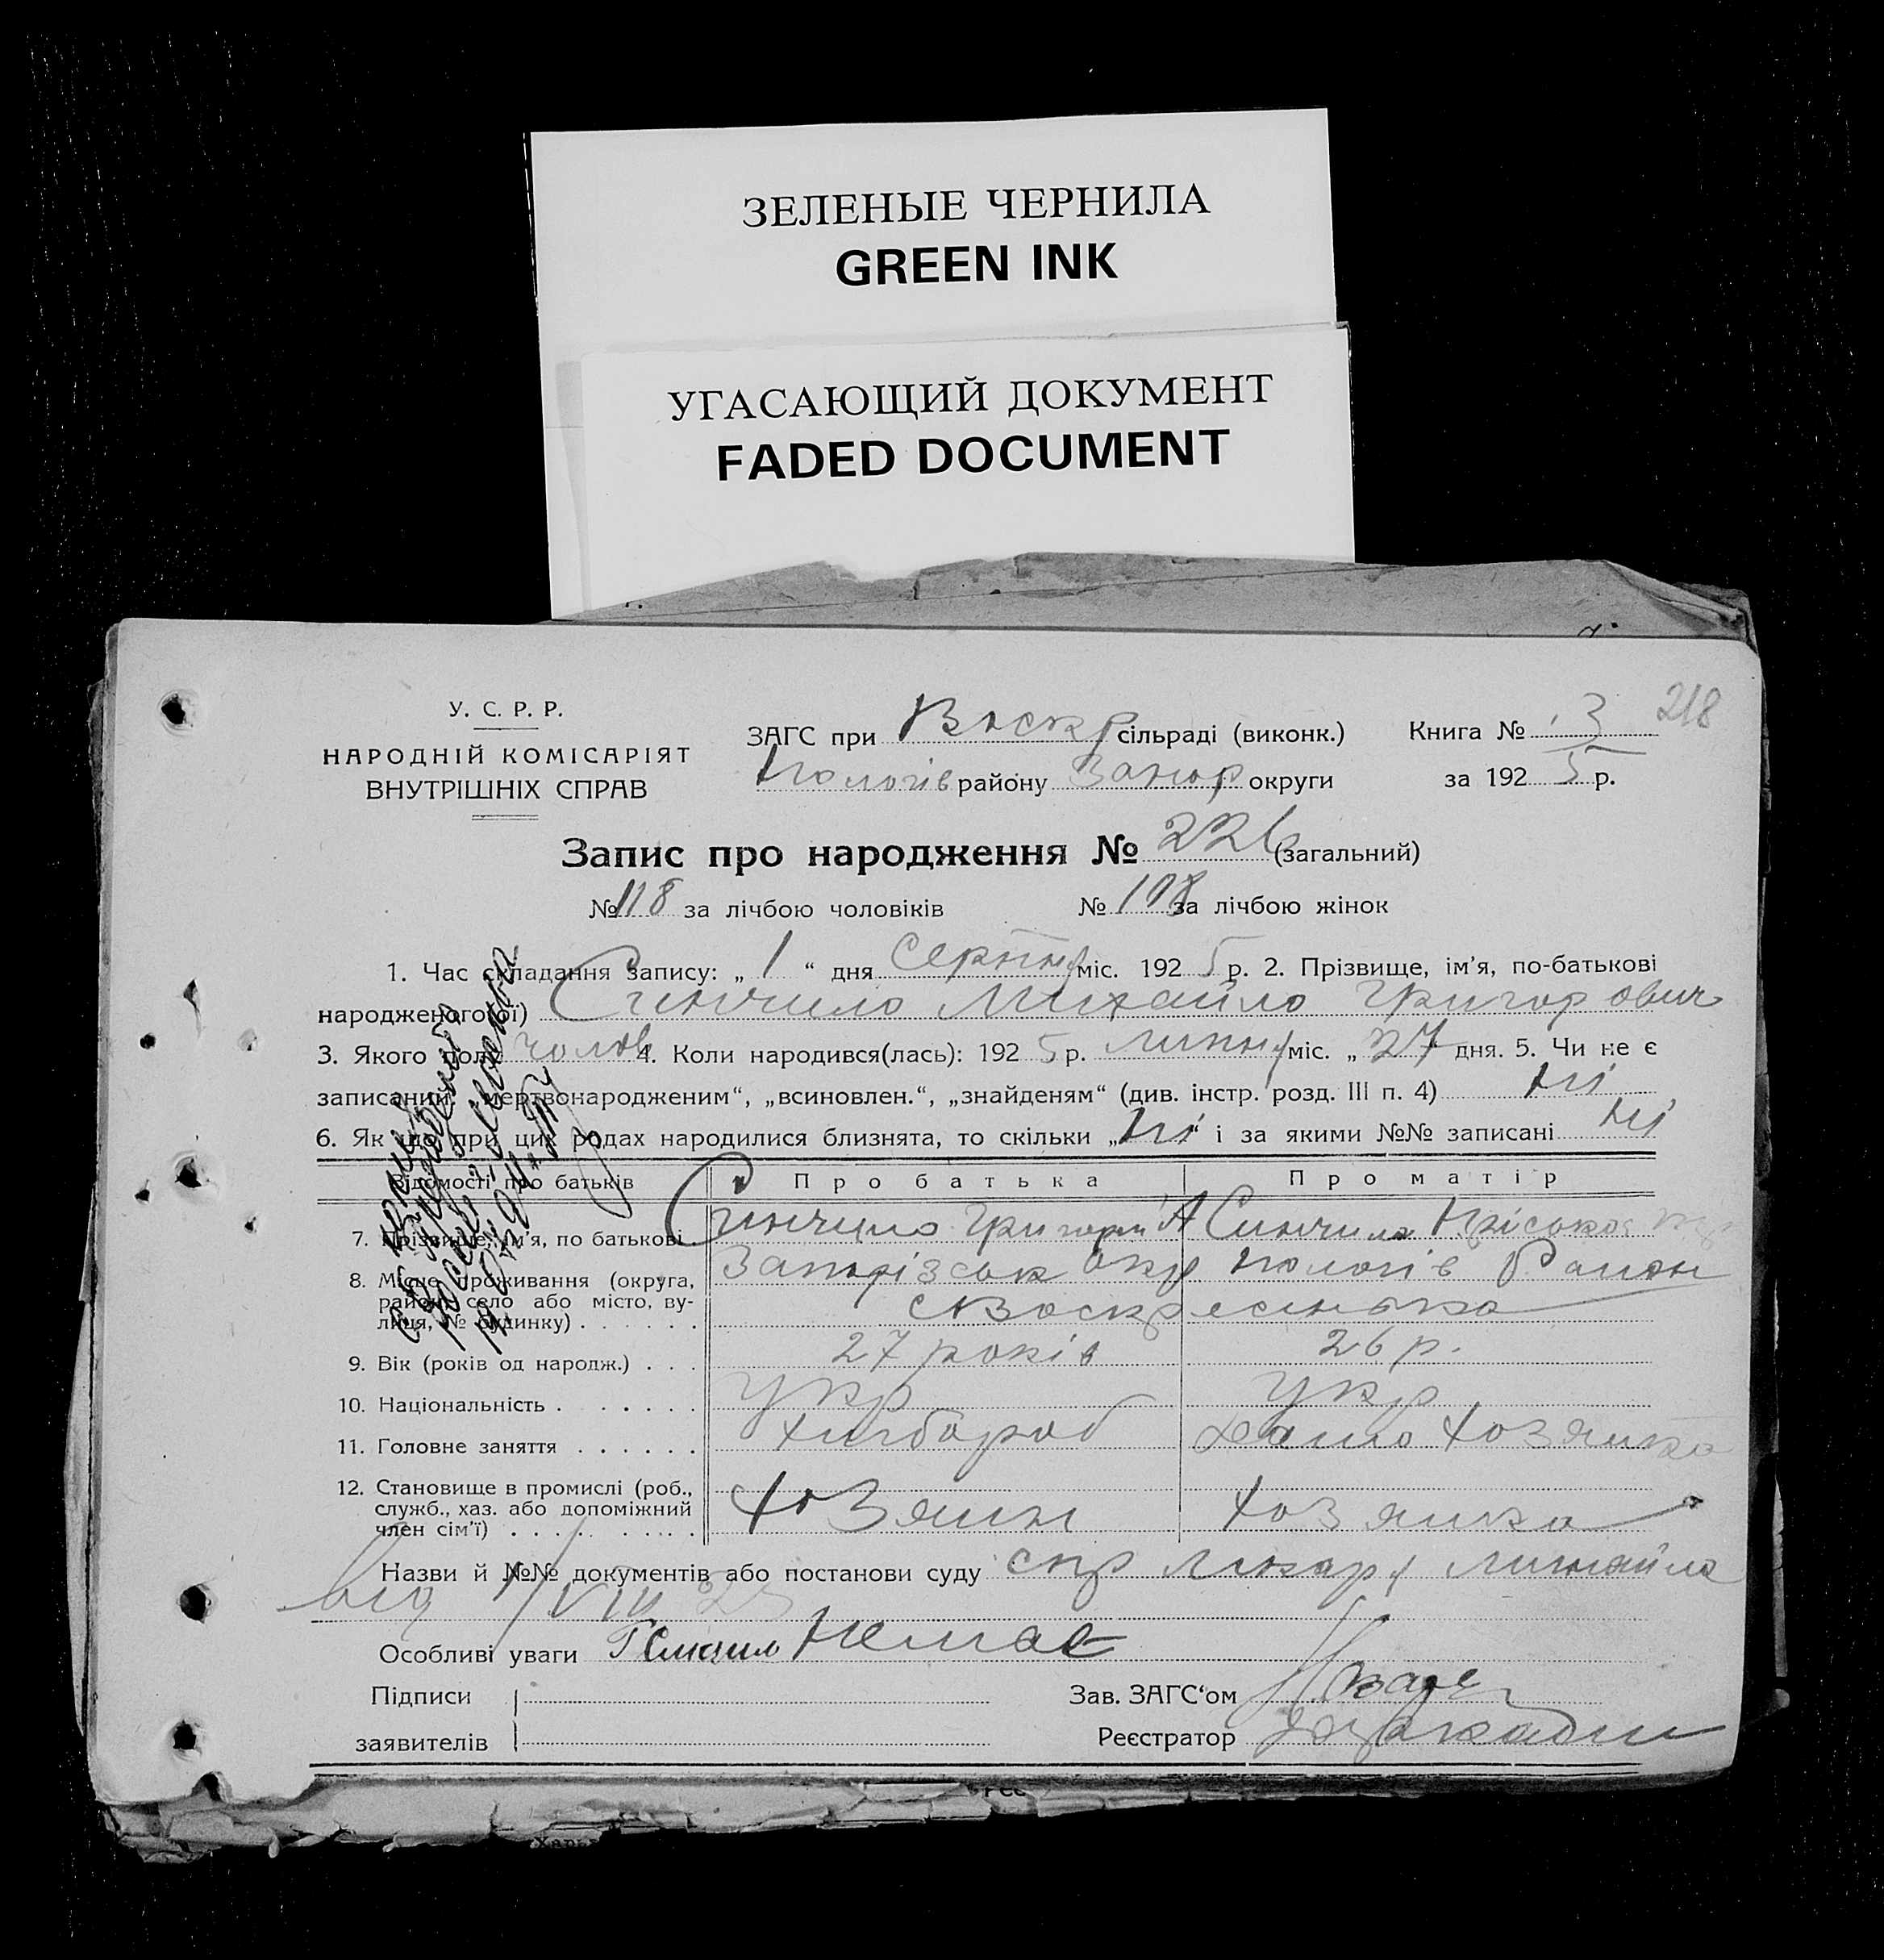 ЗЕЛЕНЫЕ ЧЕРНИЛА
GREEN INK
УГАСАЮЩИЙ ДОКУМЕНТ
FADED DOCUMENT
218
У. С. Р. Р.
НАРОДНІЙ КОМІСАРІЯТ
ВНУТРІШНІХ СПРАВ
ЗАГС при Воскр сільраді (виконк.) Книга № 3
Пологів району Запор округи за 192 5 р.
Запис про народження № 226 (загальний)
№ 118 за лічбою чоловіків № 108 за лічбою жінок
1. Час складання запису: „ 1 “ дня Серпня міс. 192 5 р. 2. Прізвище, ім’я, по-батькові
народженого(ої) Синчило Михайло Григорович
3. Якого полу чолов 4. Коли народився(лась): 192 5 р. липня міс. „ 27 “ дня. 5. Чи не є
записаний: „мертвонародженим“, „всиновлен.“, „знайденям“ (див. інстр. розд. III п. 4) Ні
6. Як що при цих родах народилися близнята, то скільки „ Ні “ і за якими №№ записані Ні
Відомості про батьків Про батька Про матір
7. Прізвище, ім’я, по батькові Синчило Григорій А Синчило Пріська
8. Місце проживання (округа, Запорізськ окр Пологів Район
район, село або місто, ву- с Воскресенька
лиця, № будинку)
9. Вік (років од народж.) 27 років 26 р.
10. Національність укр укр
11. Головне заняття хлібороб хозяйка
12. Становище в промислі (роб.,
служб., хаз. або допоміжний Хозяин хозяйка
член сім’ї)
Назви й №№ документів або постанови суду спр лікаря
від 1/VIII 25
Особливі уваги Немає
Підписи Зав. ЗАГС‘ом
заявителів Реєстратор